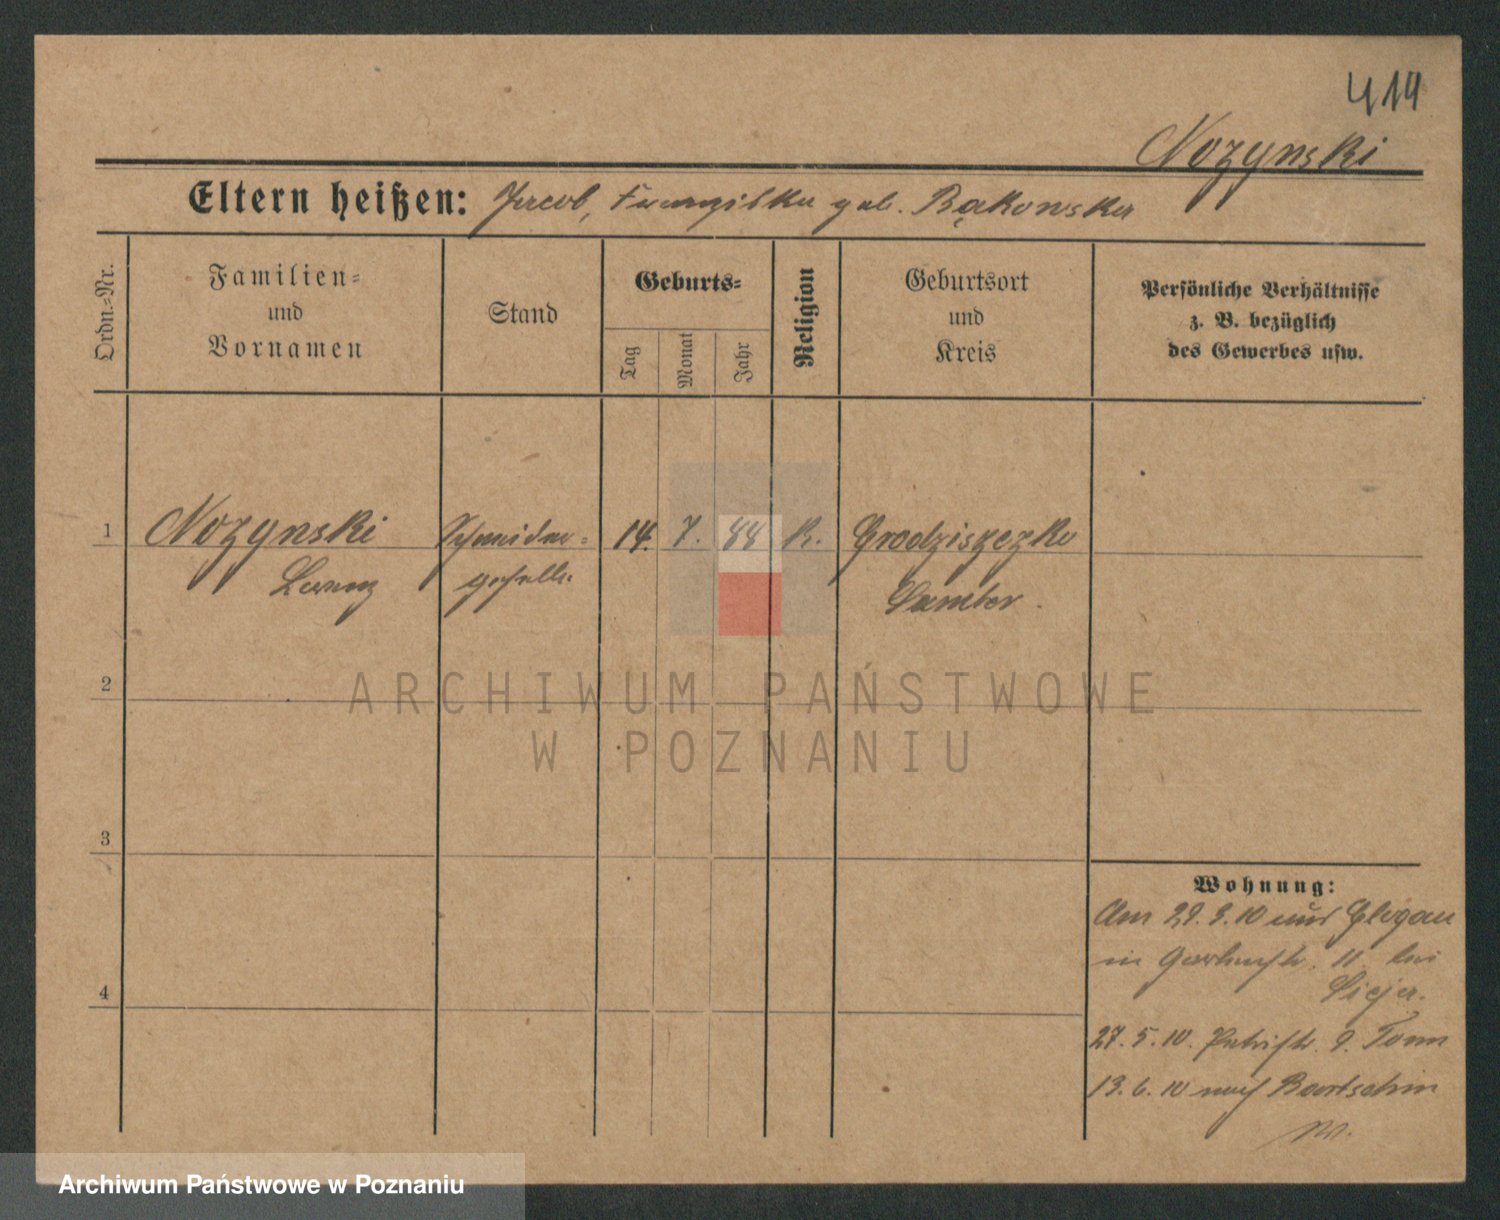 414
Nozynski
Eltern heißen: Jacob, Franziska geb. Bąkowska
Ordn.=Nr.
Familien=
und
Vornamen
Stand
Geburts=
Tag
Monat
Jahr
Religion
Geburtsort
und
Kreis
Persönliche Verhältnisse
z. B. bezüglich
des Gewerbes usw.
1 Nozynski Schneider= 14. 7. 88 k. Grodziszczko
Lorenz geselle Samter.
2
ARCHIWUM PAŃSTWOWE
W POZNANIU
3
4
Wohnung:
Am 29.3.10 aus Glogau
in Gartenstr. 11 bei
27.5.10. Petristr. 9.
13.6.10 nach Bartschin
Archiwum Państwowe w Poznaniu